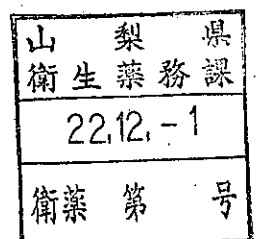 山梨県
衛生薬務課
22.12.-1
衛薬 第 号